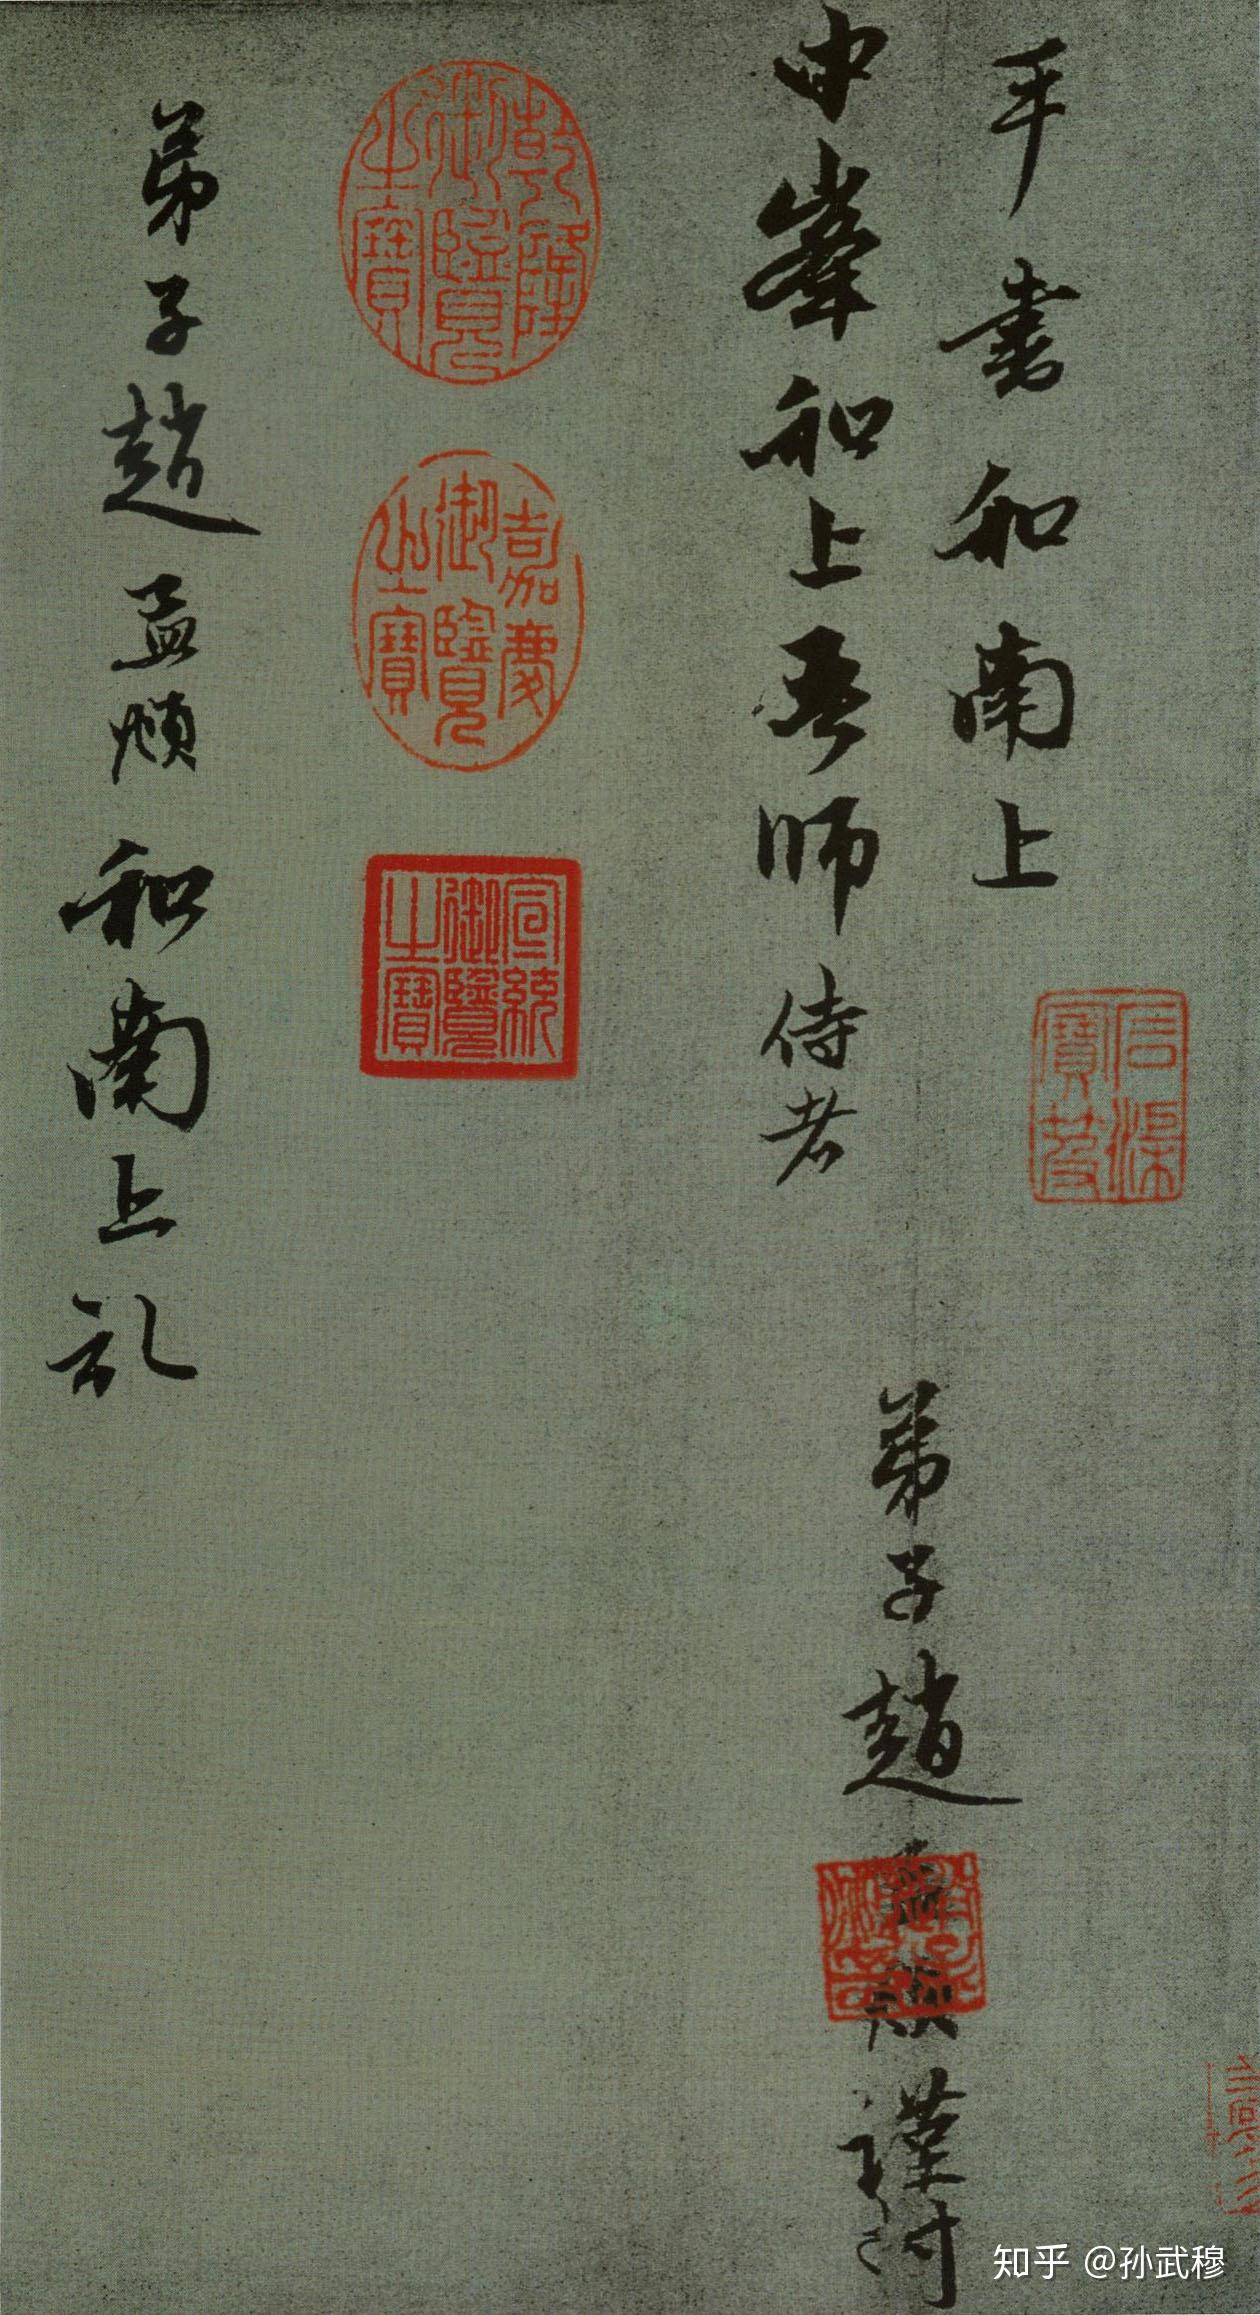 手書和南上
中峯和上吾師侍者
弟子趙孟頫謹封
乾隆御覽之寶
嘉慶御覽之寶
宣統御覽之寶
弟子趙孟頫和南上記
知乎 @孙武穆